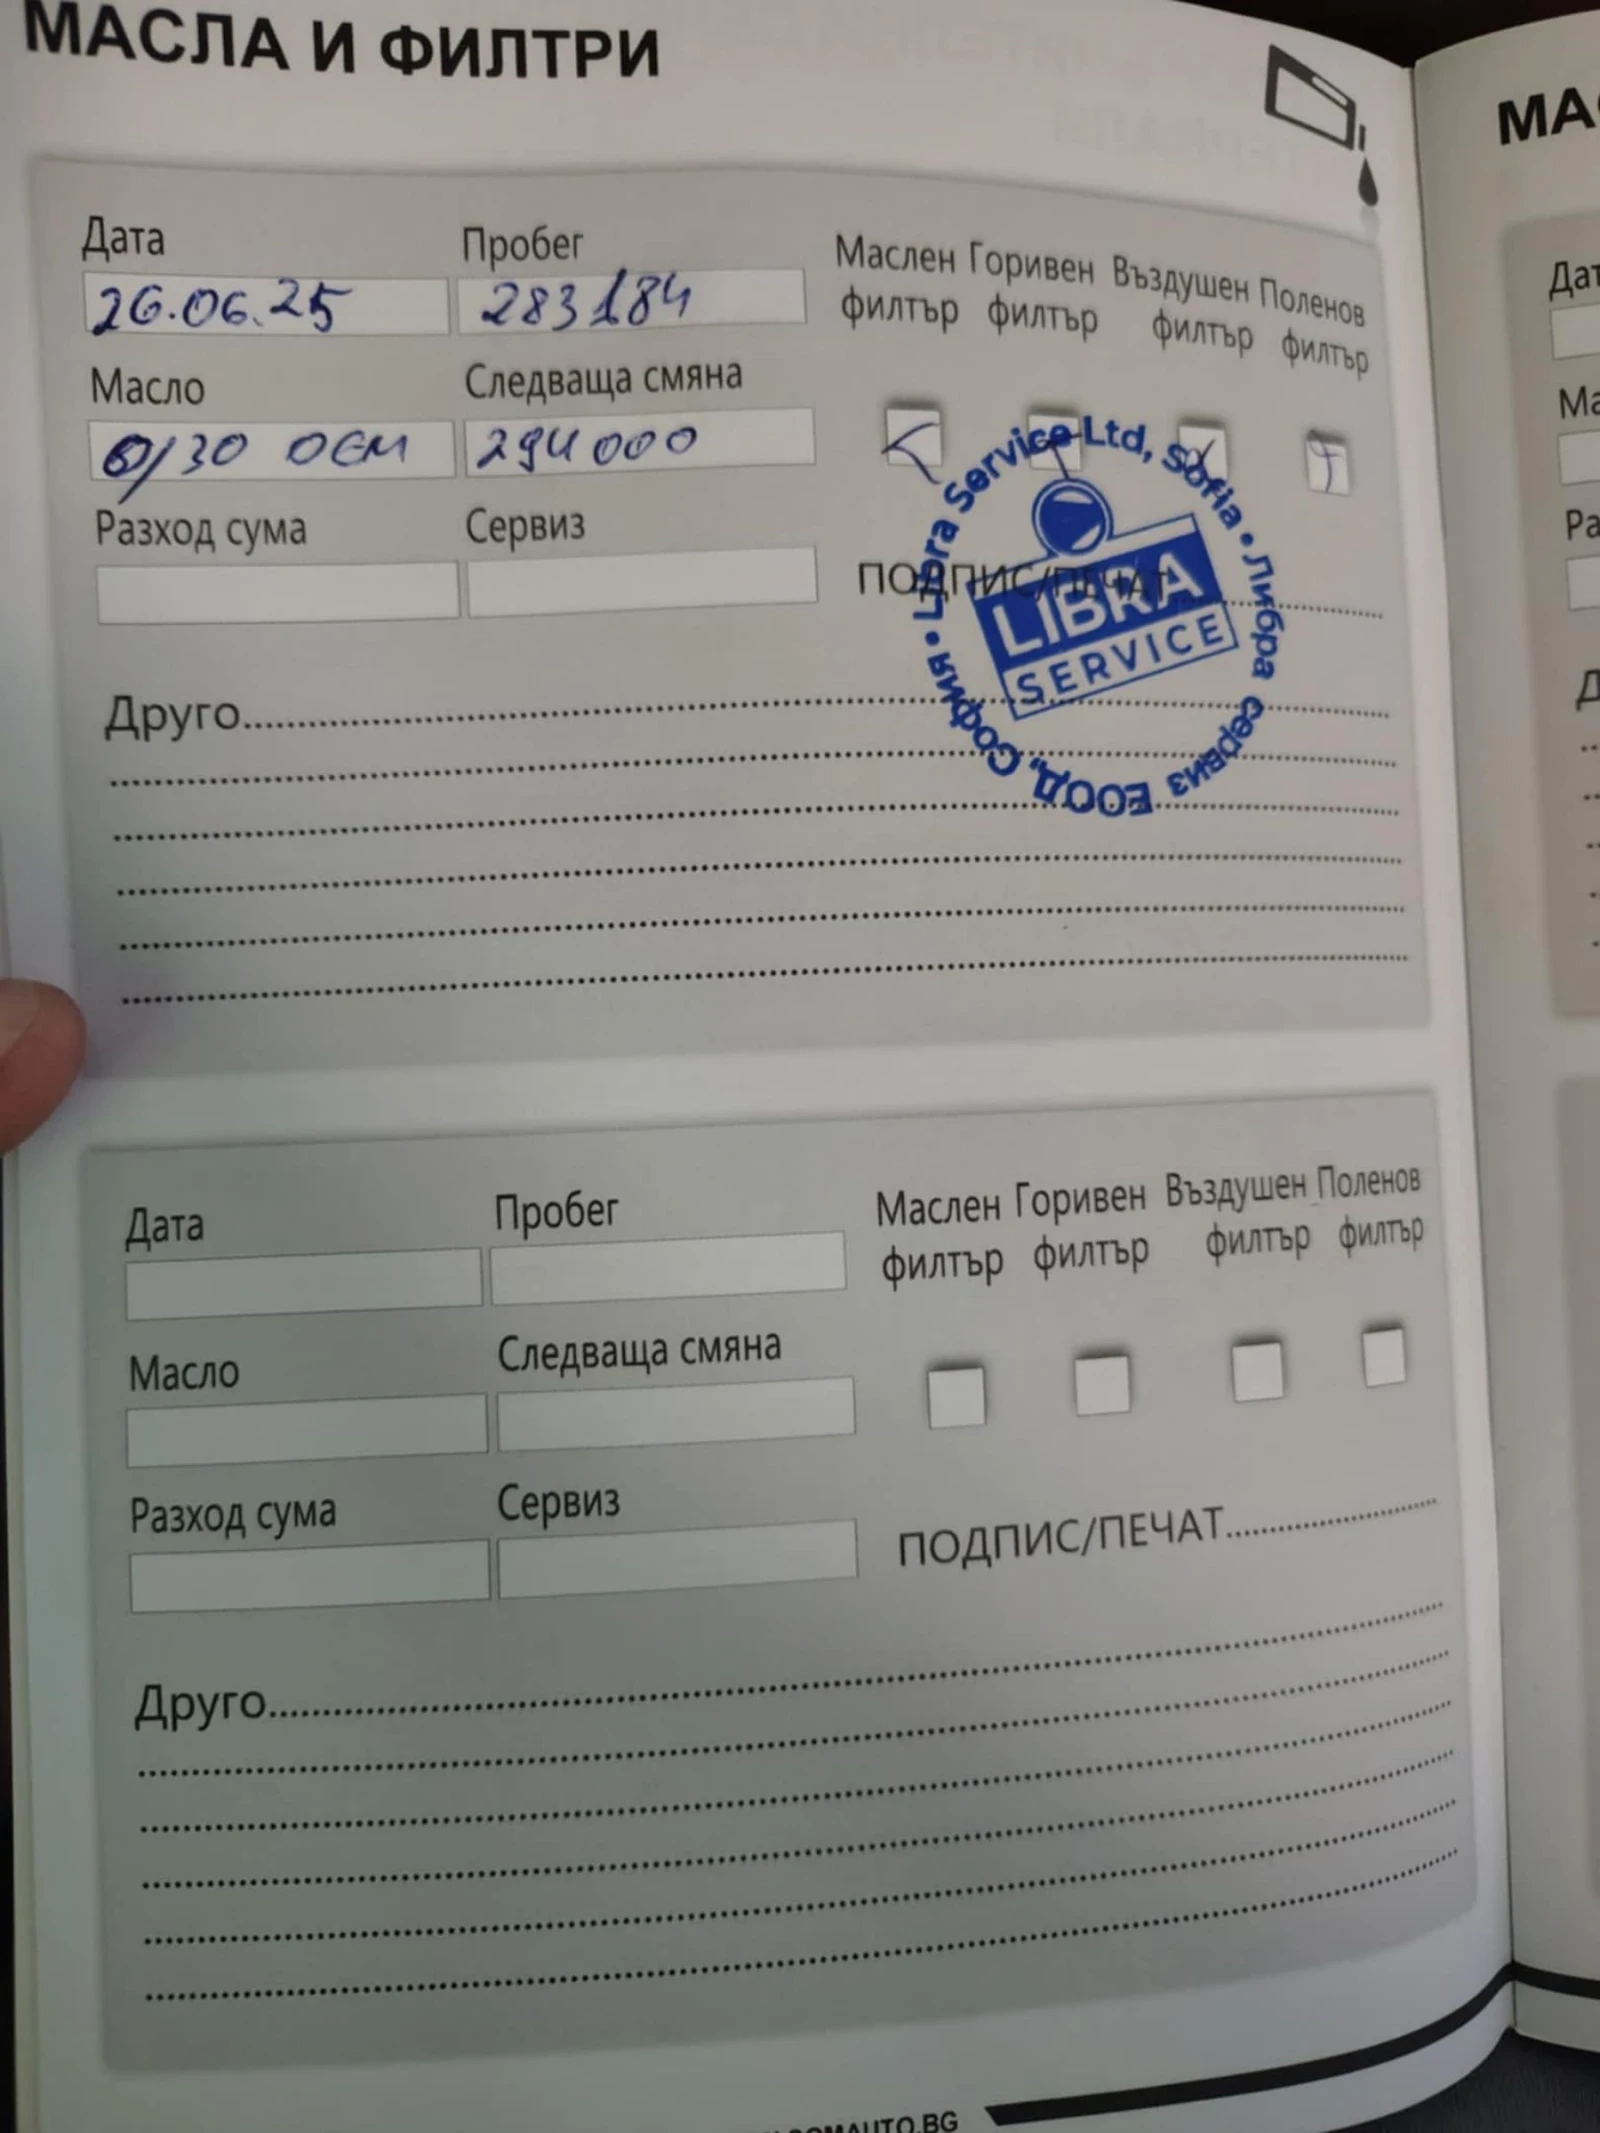 МАСЛА И ФИЛТРИ
Дата Пробег Маслен филтър Горивен филтър Въздушен филтър Поленов филтър
26.06.25 283184
Масло Следваща смяна
0/30 OEM 294000
Разход сума Сервиз
ПОДПИС/ПЕЧАТ
Libra Service Ltd, Sofia • Либра сервиз ЕООД, София •
LIBRA
SERVICE
Друго
Дата Пробег Маслен филтър Горивен филтър Въздушен филтър Поленов филтър
Масло Следваща смяна
Разход сума Сервиз
ПОДПИС/ПЕЧАТ
Друго